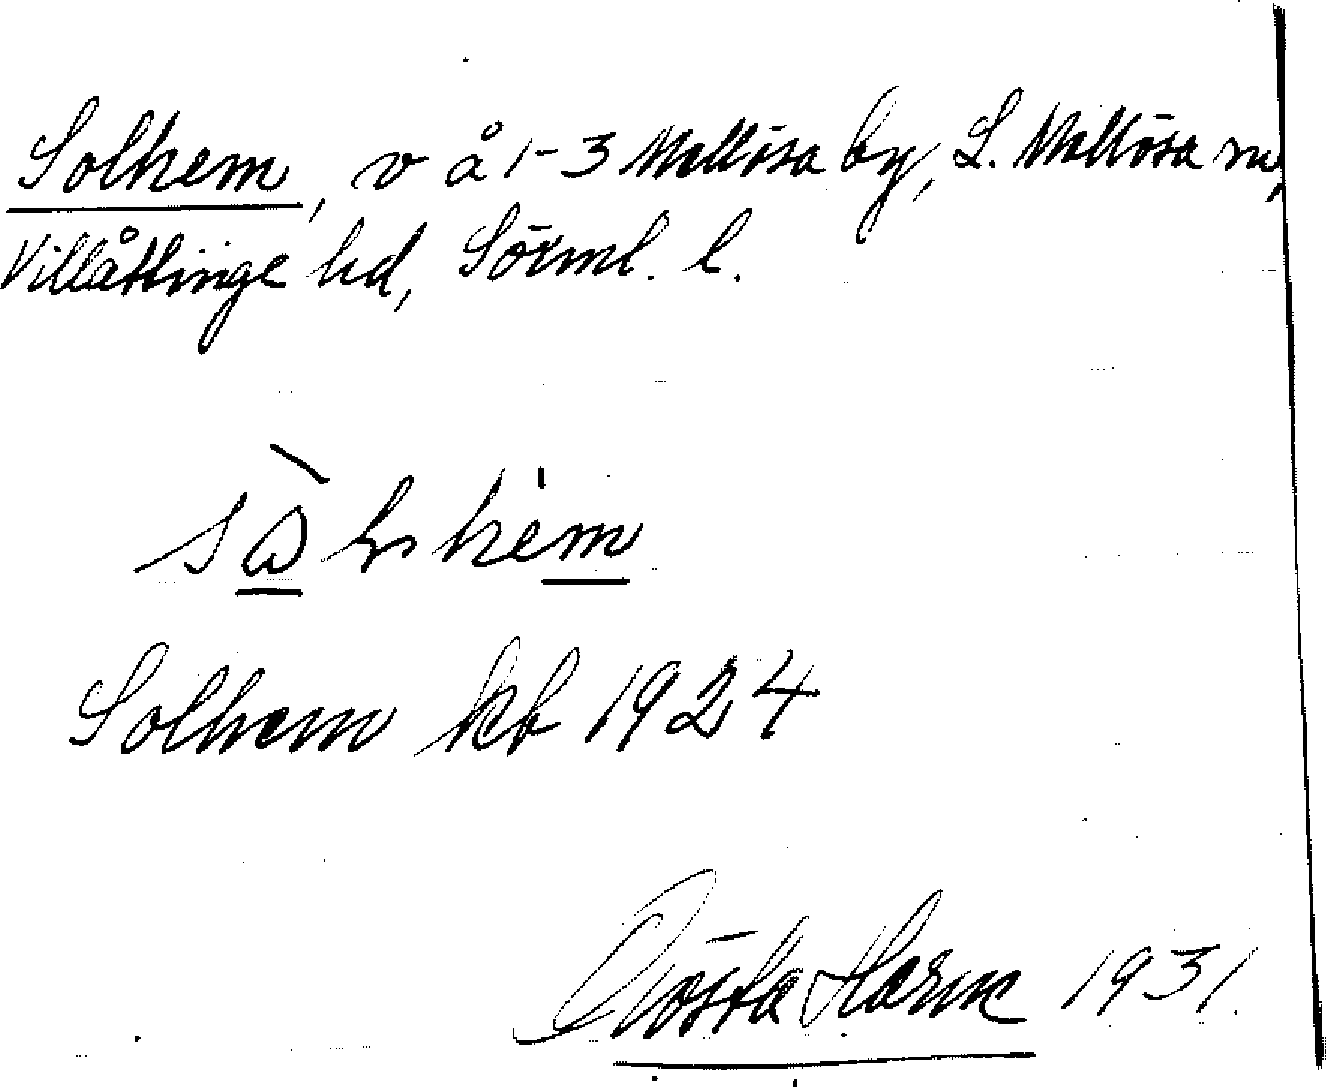 Solhem, v å 1-3 Mellösa by, L. Mellösa sn,
Villåttinge hd, Sörml. l.
Solhem kb 1924
Gösta Harm 1931.